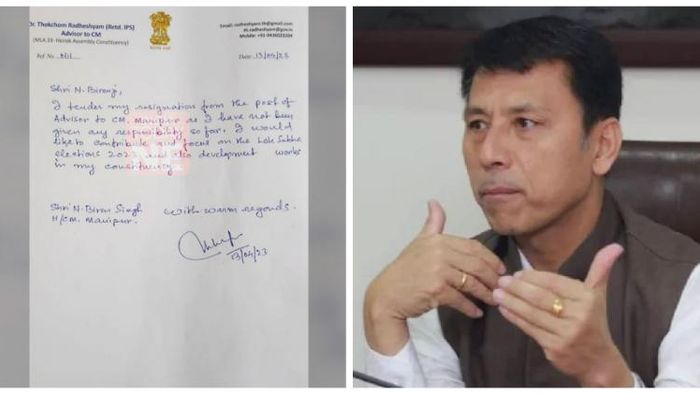 Dr. Thokchom Radheshyam (Retd. IPS)
Advisor to CM
(MLA 33- Heirok Assembly Constituency)
Email: radheshyam.th@gmail.com
Mobile: +91
Ref No.
Date: 13/04/23
Shri N. Biren ji,
I tender my resignation from the post of
Advisor to CM, Manipur as I have not been
given any responsibility so far. I would
like to contribute and focus on the Lok Sabha
elections and also development works
in my constituency.
With warm regards.
Shri N. Biren Singh
H/CM, Manipur.
13/04/23